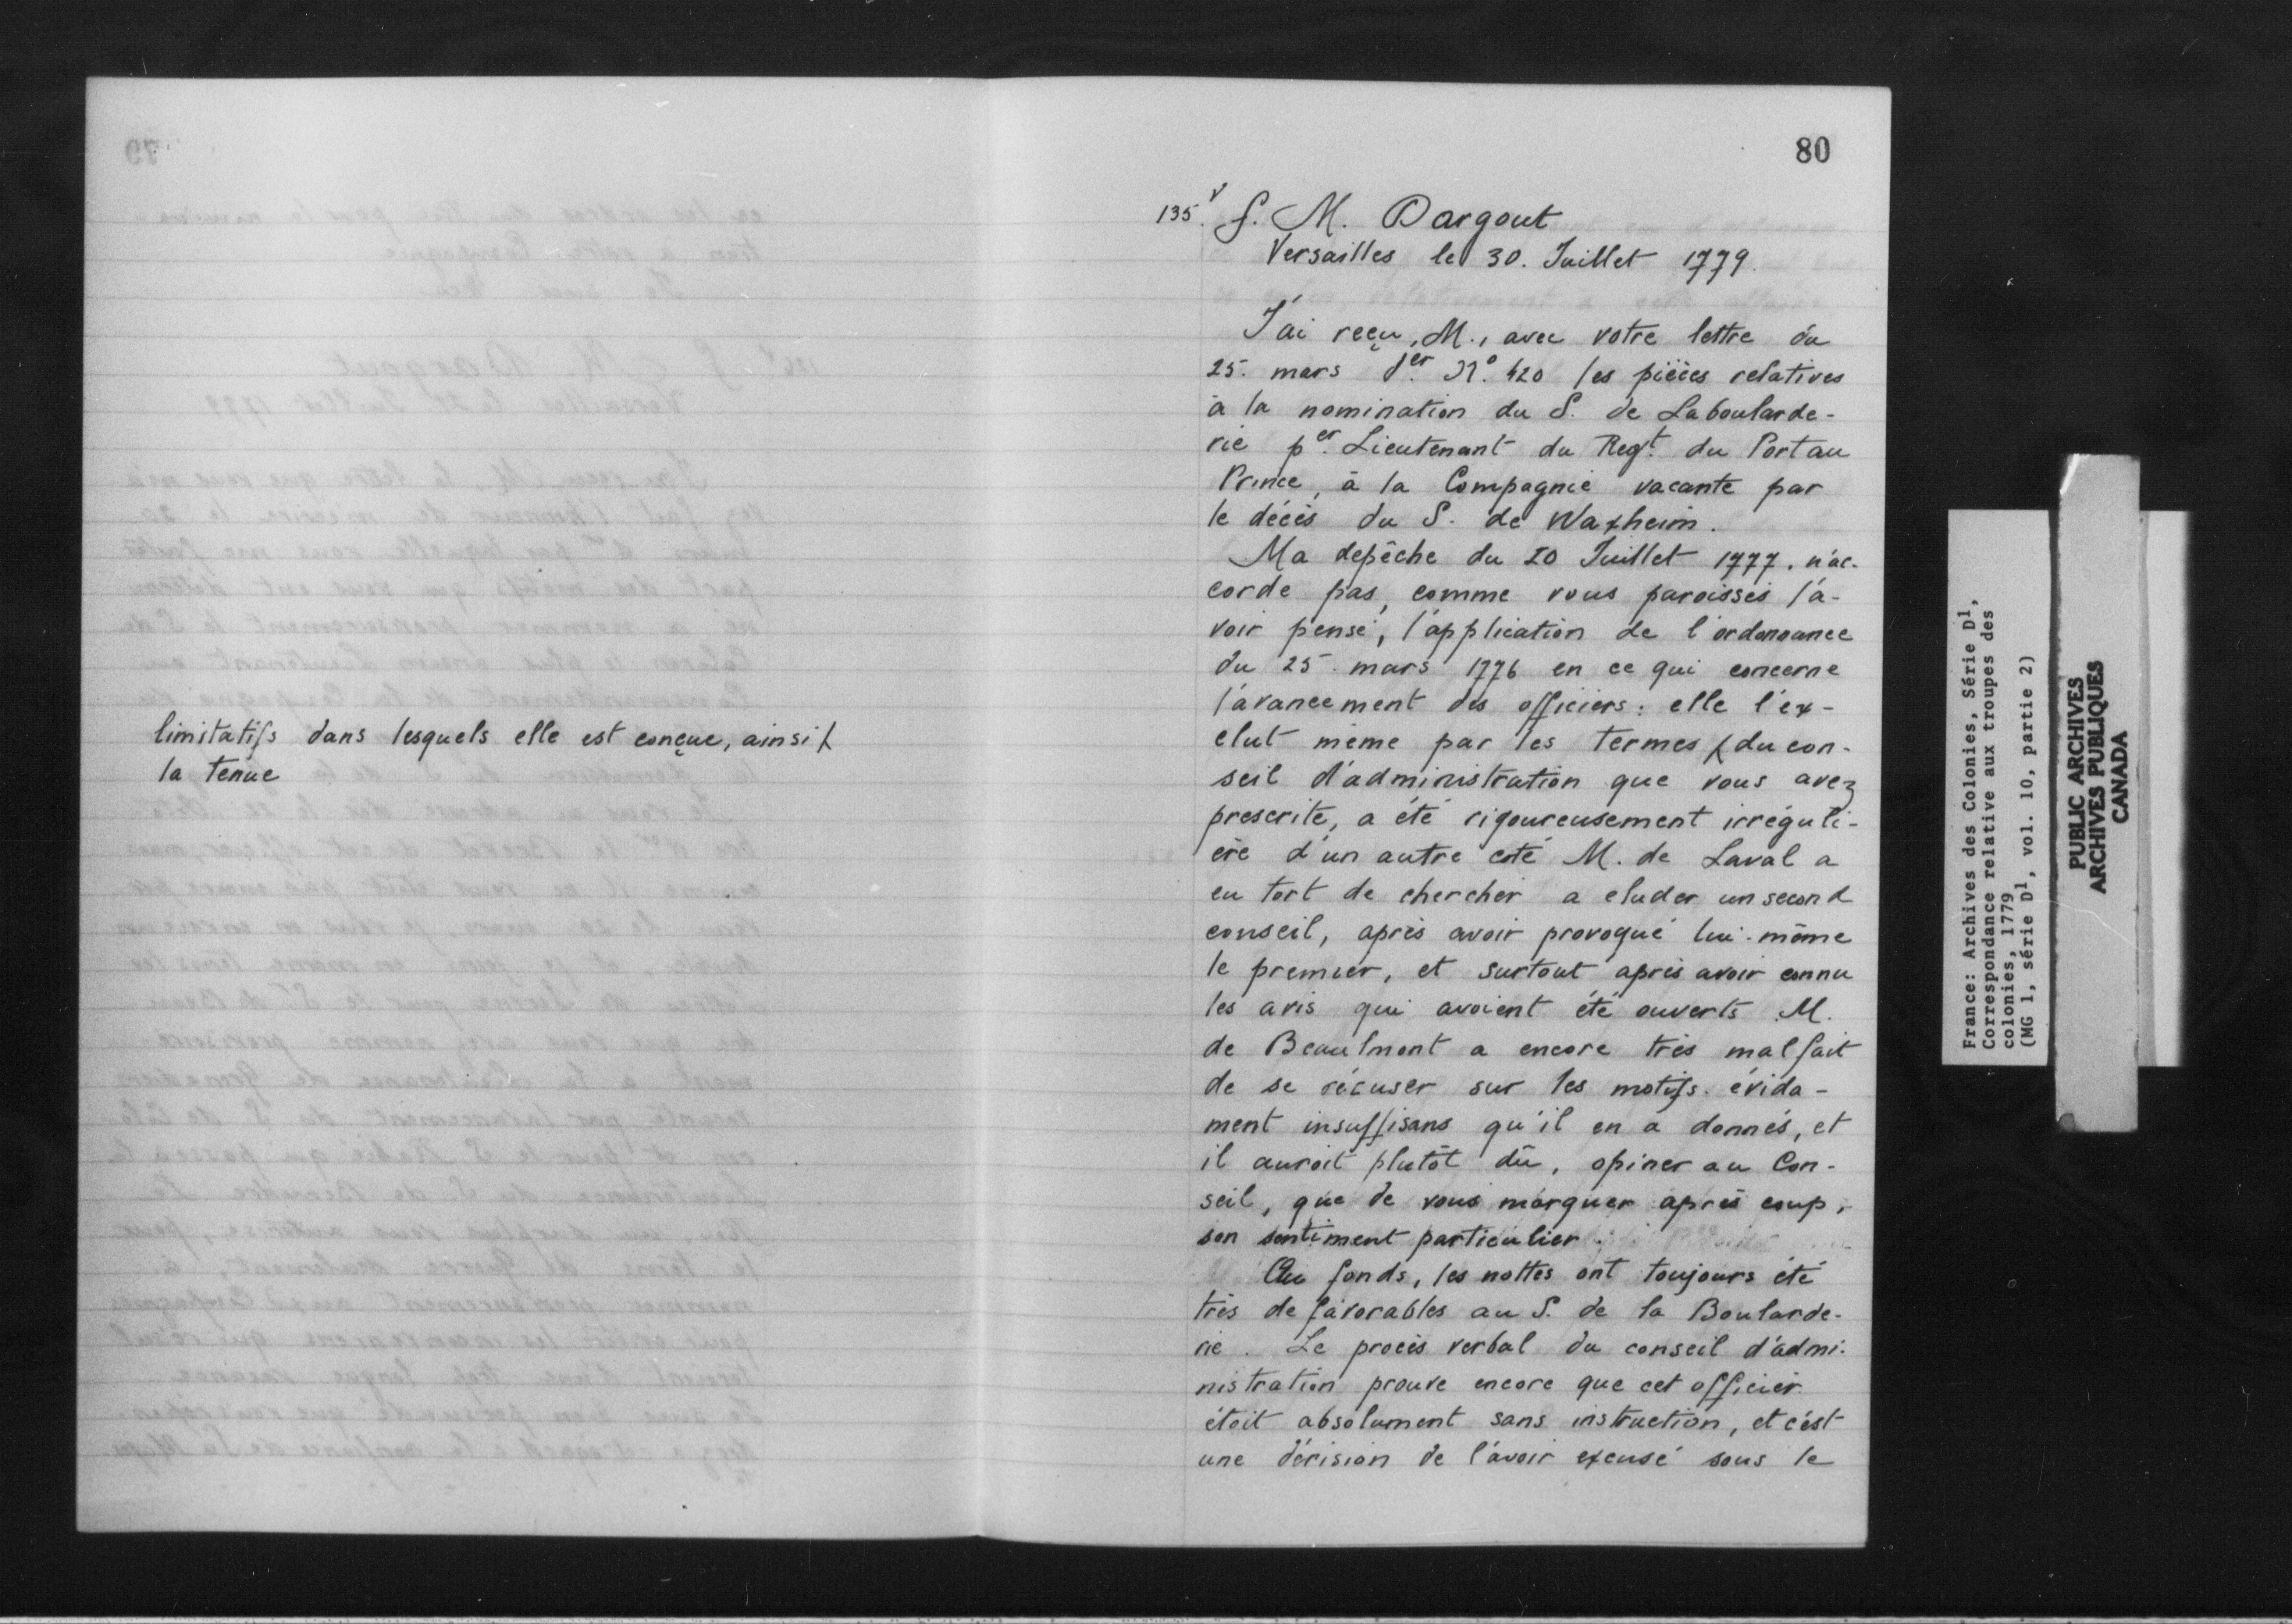 80
135.v S. M. Dargout
Versailles le 30. Juillet 1779.
J'ai reçu, M., avec votre lettre du
25. mars der. No. 420 les pièces relatives
à la nomination du S. de Laboularde-
rie per. Lieutenant du Regt. du Port au
Prince, à la Compagnie vacante par
le décès du S. de Waxheim.
Ma depêche du 20 Juillet 1777. n'ac-
corde pas, comme vous paroissés l'a-
voir pensé, l'application de l'ordonnance
du 25. mars 1776 en ce qui concerne
l'avancement des officiers: elle l'ex-
clut même par les termes X du con-
seil d'administration que vous avez
prescrite, a été rigoureusement irréguli-
ère d'un autre coté M. de Laval a
eu tort de chercher a eluder un second
conseil, après avoir provoqué lui-même
le premier, et surtout après avoir connu
les avis qui avoient été ouverts M.
de Beaulmont a encore très mal fait
de se récuser sur les motifs évida-
ment insuffisans qu'il en a donnés, et
il auroit plutôt dû, opiner au Con-
seil, que de vous marquer après coup,
son sentiment particulier.
Au fonds, les nottes ont toujours été
très defavorables au S. de la Boularde-
rie. Le procès verbal du conseil d'admi-
nistration prouve encore que cet officier
étoit absolument sans instruction, et c'est
une dérision de l'avoir excusé sous le
limitatifs dans lesquels elle est conçue, ainsi X
la tenue
France: Archives des Colonies, Série D1,
Correspondance relative aux troupes des
colonies, 1779
(MG 1, série D1, vol. 10, partie 2)
PUBLIC ARCHIVES
ARCHIVES PUBLIQUES
CANADA